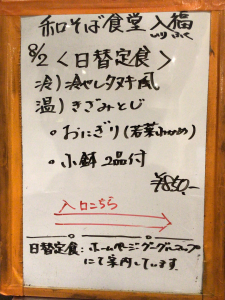 和そば食堂 入福
いりふく
8/2 <日替定食>
冷) 冷やしタヌキ風
温) きざみとじ
・おにぎり(若菜
・小鉢 2品付
¥850.-
入口こちら
日替定食:ホームページグーグルマップ
にて案内しています